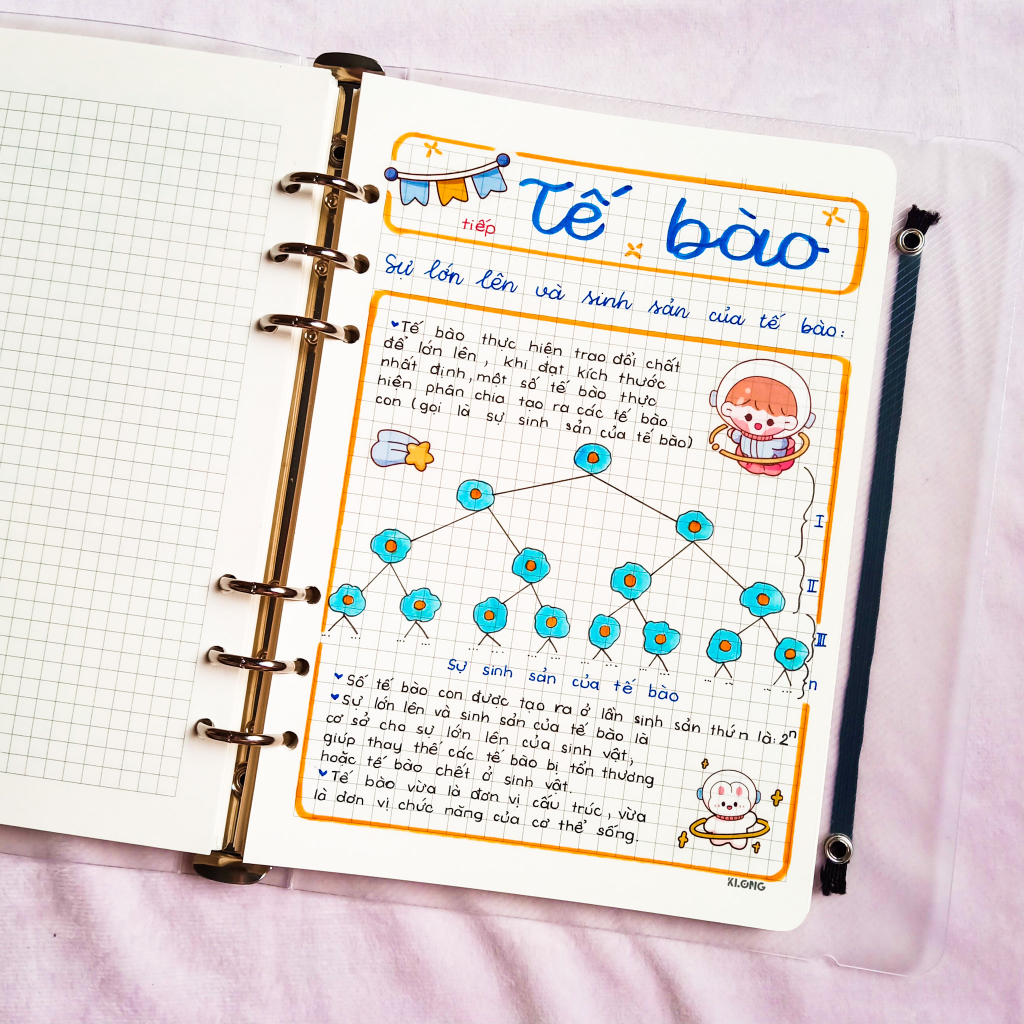 Tế bào
tiếp
Sự lớn lên và sinh sản của tế bào:
Tế bào thực hiện trao đổi chất
để lớn lên, khi đạt kích thước
nhất định, một số tế bào thực
hiện phân chia tạo ra các tế bào
con (gọi là sự sinh sản của tế bào)
I
II
III
n
Sự sinh sản của tế bào
Số tế bào con được tạo ra ở lần sinh sản thứ n là: 2ⁿ
Sự lớn lên và sinh sản của tế bào là
cơ sở cho sự lớn lên của sinh vật,
giúp thay thế các tế bào bị tổn thương
hoặc tế bào chết ở sinh vật.
Tế bào vừa là đơn vị cấu trúc, vừa
là đơn vị chức năng của cơ thể sống.
KLONG